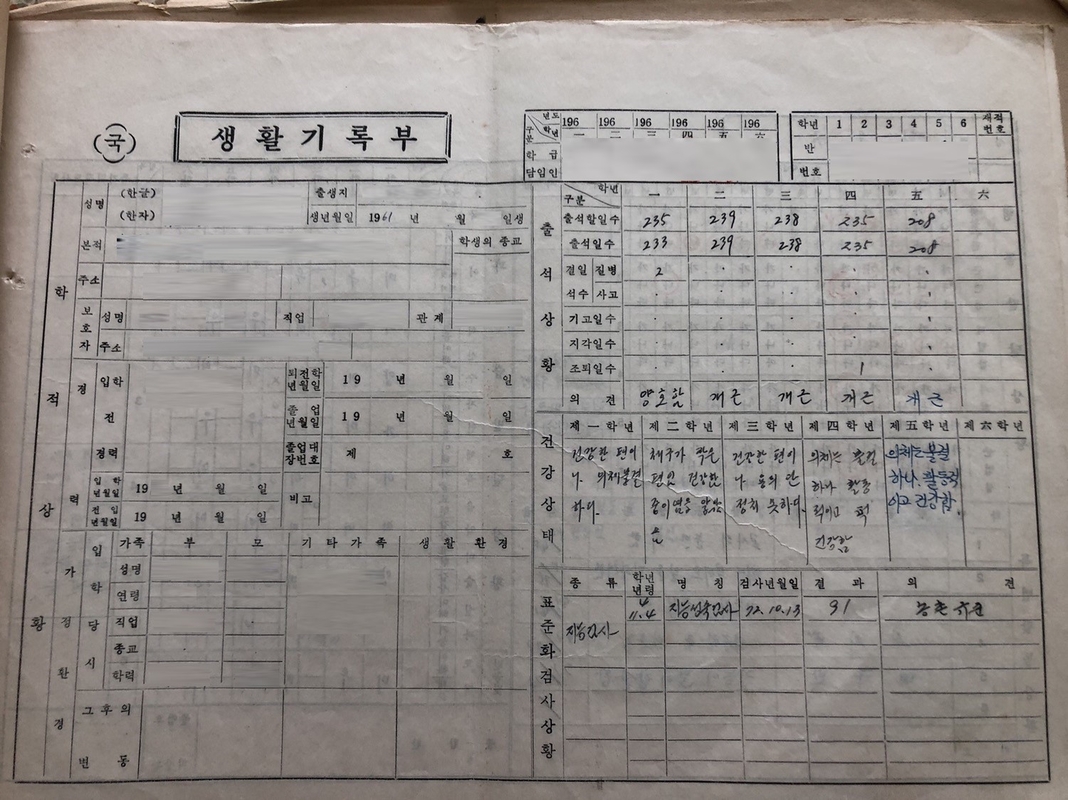 국
생활기록부
년도 196 196 196 196 196 196
구분 학년 一 二 三 四 五 六
학급
담임인
학년 1 2 3 4 5 6 재적번호
반
번호
학적상황
성명 (한글) 출생지
(한자) 생년월일 1961 년 월 일생
본적 학생의 종교
주소
보호자 성명 직업 관계
주소
경력
입학 퇴전학년월일 19 년 월 일
전 졸업년월일 19 년 월 일
경력 졸업대장번호 제 호
입학년월일 19 년 월 일 비고
전입년월일 19 년 월 일
가정환경
입학당시
가족 부 모 기타가족 생활환경
성명
연령
직업
종교
학력
그후의
변동
출석상황
구분 학년 一 二 三 四 五 六
출석할일수 235 239 238 235 208
출석일수 233 239 238 235 208
결일 질병 2
석수 사고
기고일수
지각일수
조퇴일수 1
의견 양호함 개근 개근 개근 개근
건강상태
제一학년 제二학년 제三학년 제四학년 제五학년 제六학년
건강한 편이나 의체불결하다.
체구가 작은 편
건강한 편이나 정치 못하다.
의체는 불결하나 활동적이고 퍽 건강함
의체는 불결하나 활동적이고 건강함.
표준화검사상황
종류 학년년령 명칭 검사년월일 결과 의견
지능검사 4 11.4 72.10.13 91